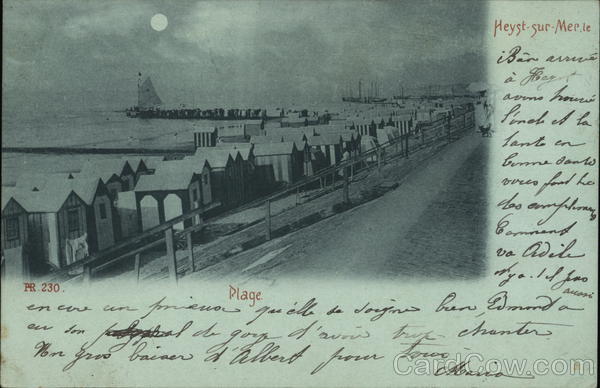 Heyst-sur-Mer. le
Bien arrivé
à Heyst
avons trouvé
l'oncle et la
tante en
bonne santé
vous font
des compliments
Comment
va Adèle
n'y a-t-il pas
aussi
PR. 230.
Plage.
encore un qu'elle se soigne bien, Edmond a
eu son de gorge d'avoir trop chanter
Un gros baiser d'Albert pour
Maria
CardCow.com